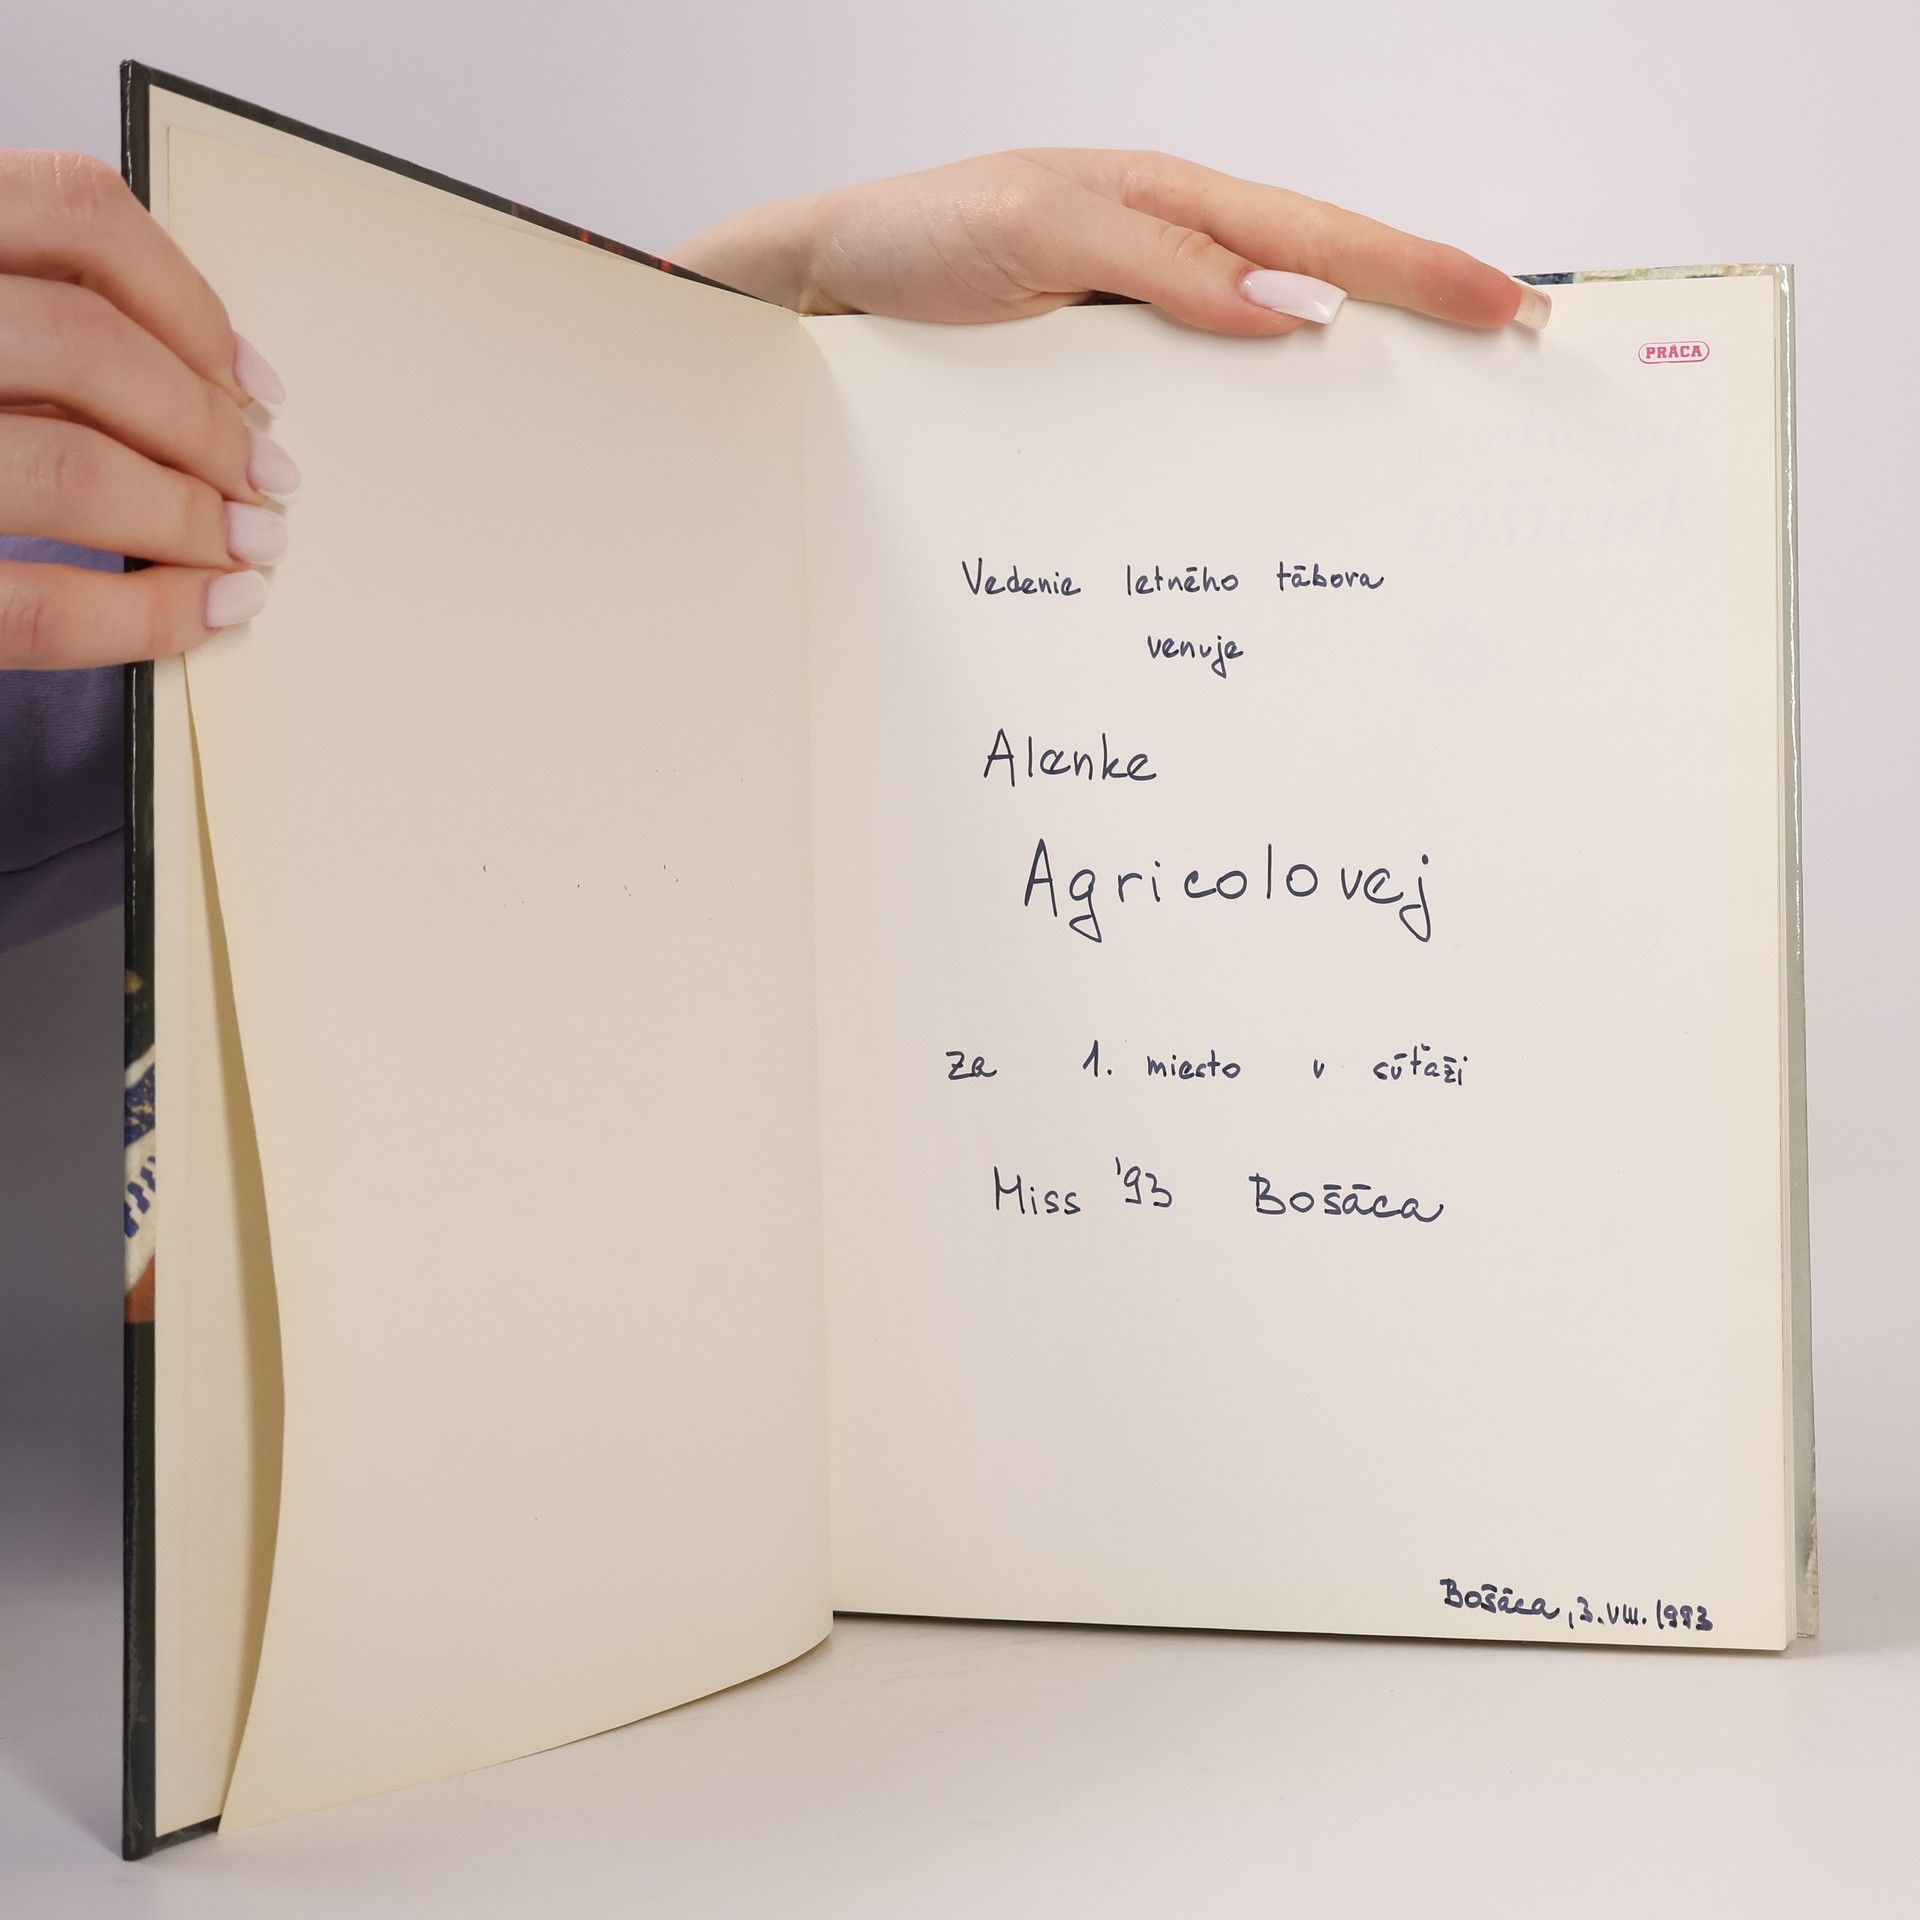 PRÁCA
vzorkovnica
výšiviek
Vedenie letného tábora
venuje
Alenke
Agricolovej
za 1. miesto v súťaži
Miss '93 Bošáca
Bošáca, 3. VIII. 1993